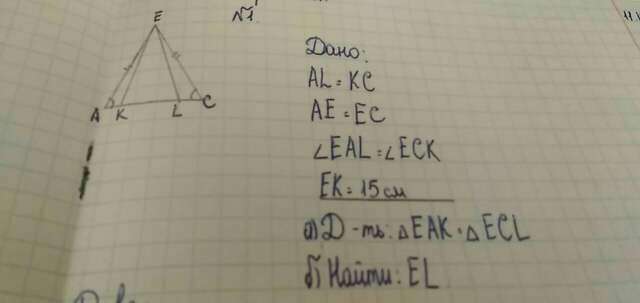 N1
E
A K L C
Дано:
AL = KC
AE = EC
∠EAL = ∠ECK
EK = 15 см
а) Д-ть: △EAK = △ECL
б) Найти: EL